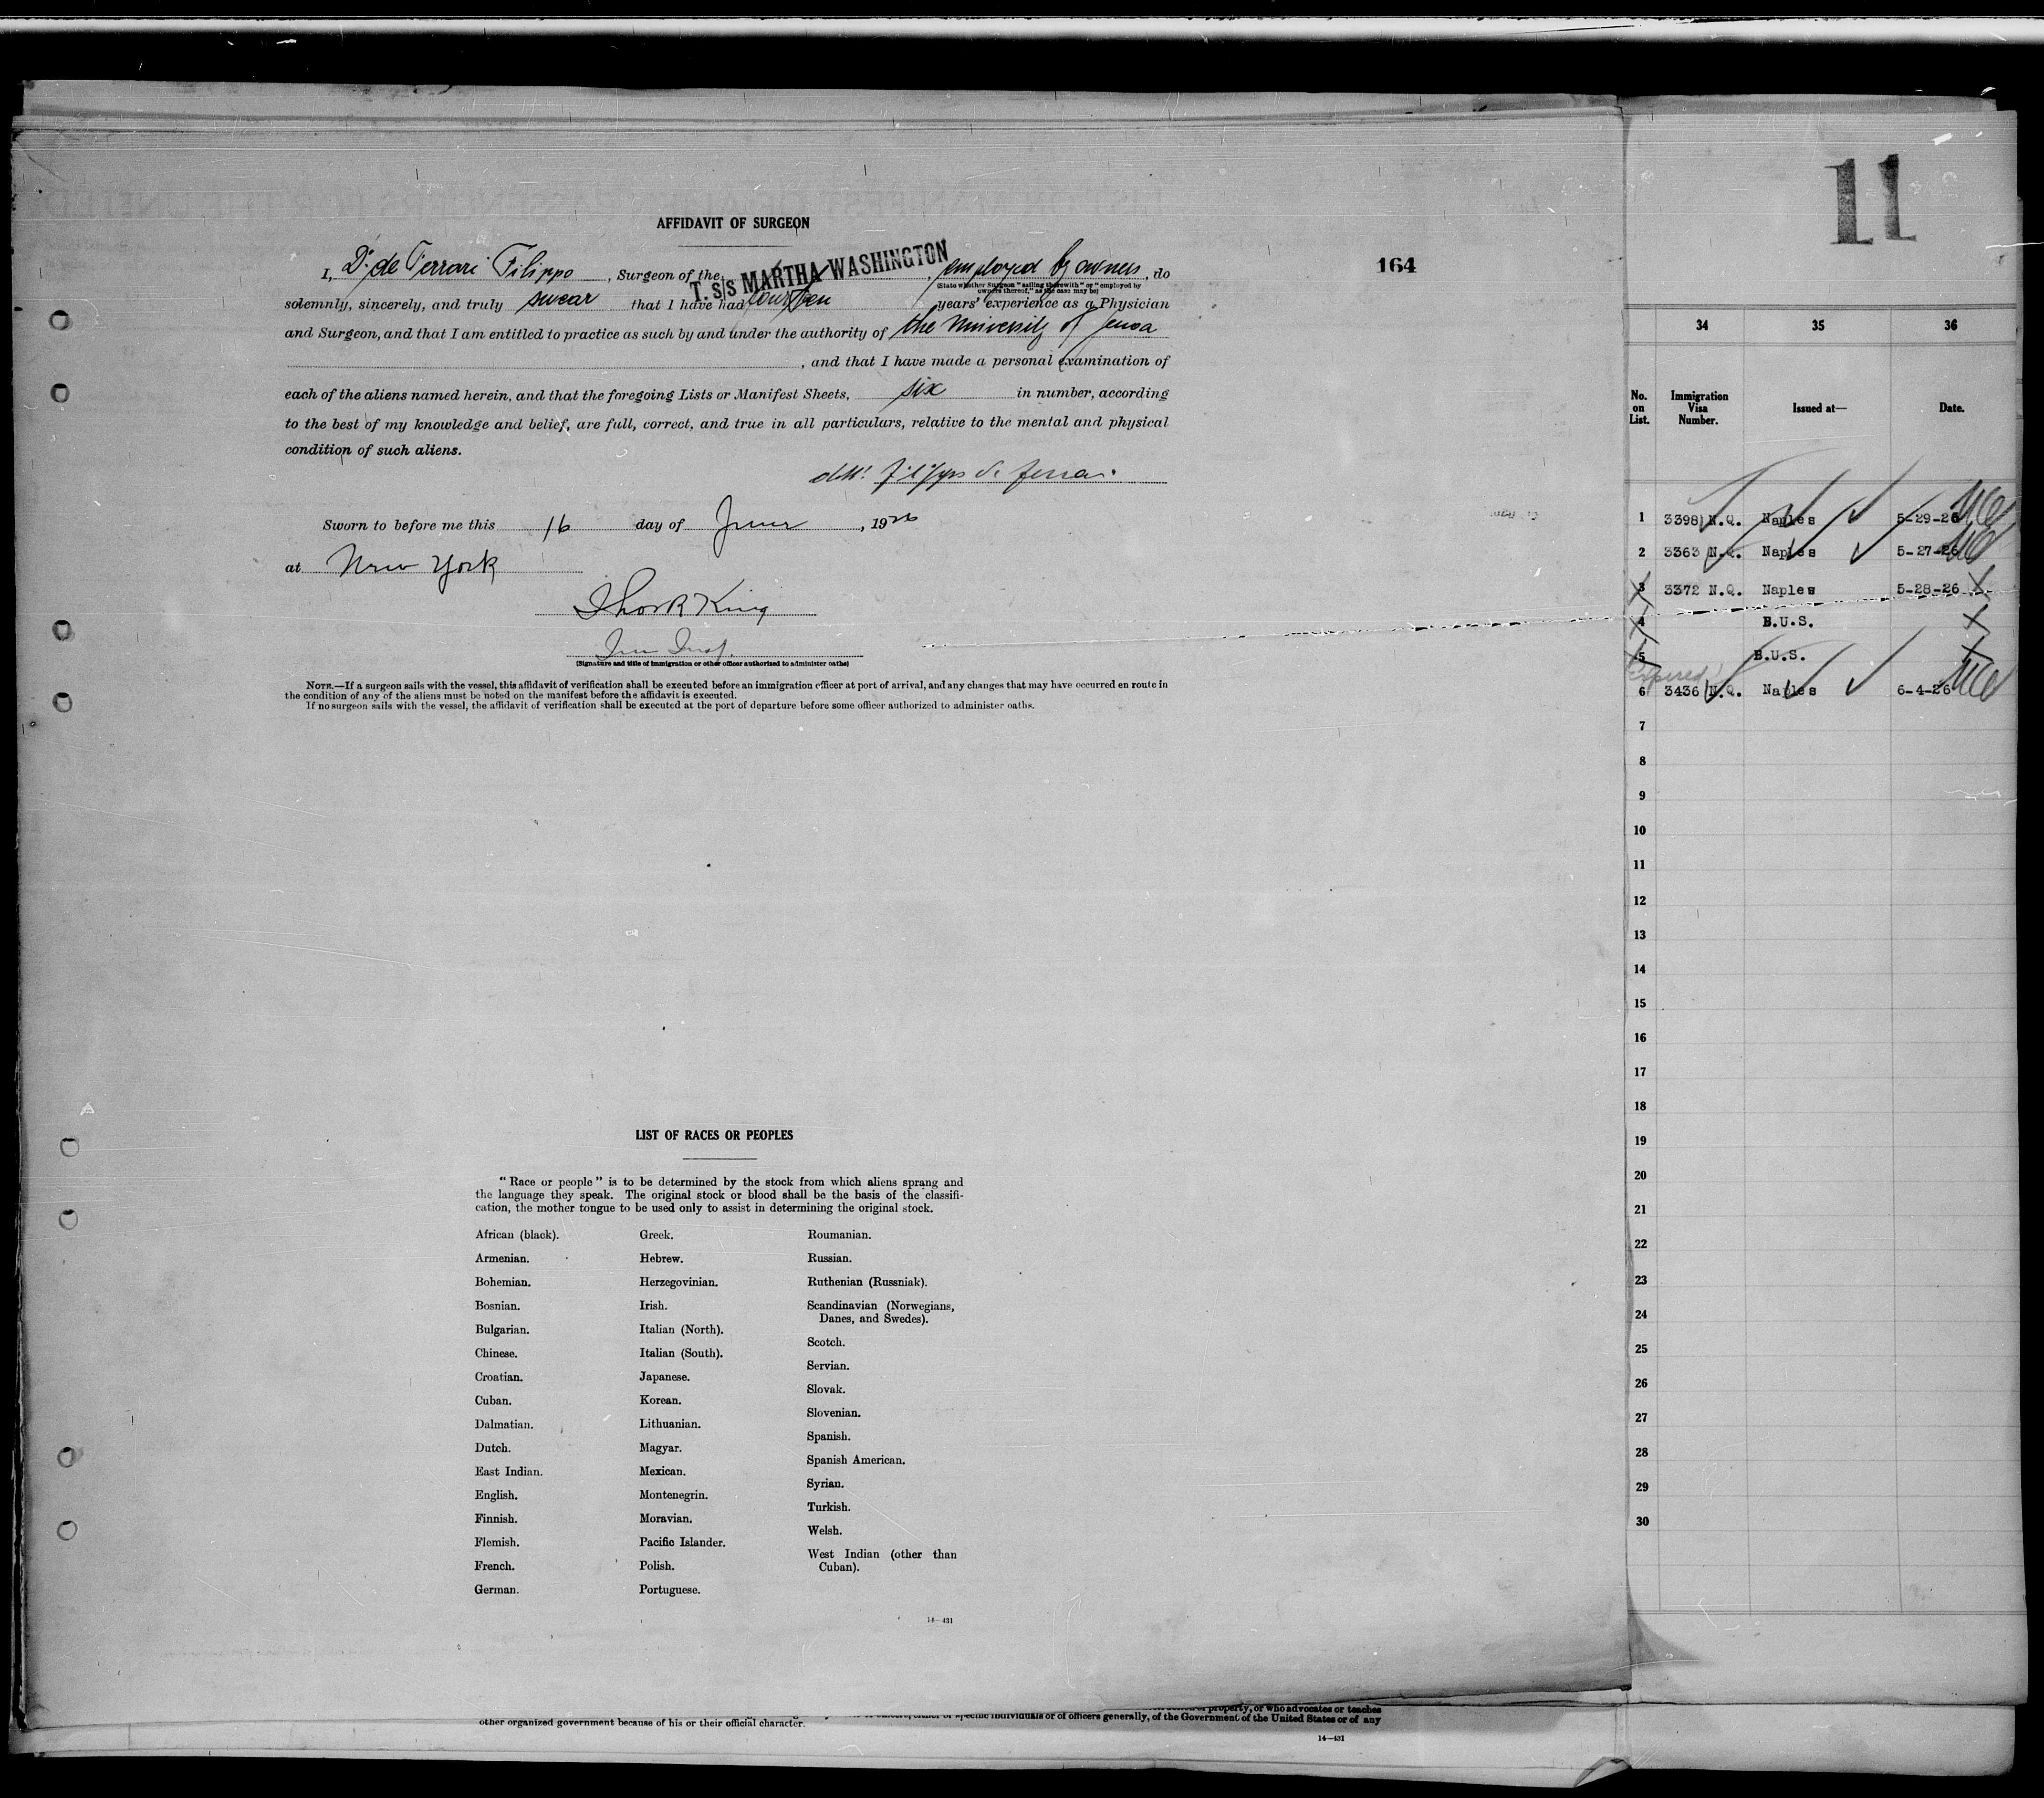 11
AFFIDAVIT OF SURGEON
164
I, Dr. de Ferrari Filippo, Surgeon of the T. S/S MARTHA WASHINGTON, employed by owners, do
(State whether Surgeon "sailing therewith" or "employed by owners thereof," as the case may be)
solemnly, sincerely, and truly swear that I have had fourteen years' experience as a Physician
and Surgeon, and that I am entitled to practice as such by and under the authority of the University of Genoa
, and that I have made a personal examination of
each of the aliens named herein, and that the foregoing Lists or Manifest Sheets, six in number, according
to the best of my knowledge and belief, are full, correct, and true in all particulars, relative to the mental and physical
condition of such aliens.
Filippo de Ferrari
Sworn to before me this 16 day of June, 1926
at New York
King
Imm Insp.
(Signature and title of immigration or other officer authorized to administer oaths)
NOTE.—If a surgeon sails with the vessel, this affidavit of verification shall be executed before an immigration officer at port of arrival, and any changes that may have occurred en route in
the condition of any of the aliens must be noted on the manifest before the affidavit is executed.
If no surgeon sails with the vessel, the affidavit of verification shall be executed at the port of departure before some officer authorized to administer oaths.
LIST OF RACES OR PEOPLES
"Race or people" is to be determined by the stock from which aliens sprang and
the language they speak. The original stock or blood shall be the basis of the classifi-
cation, the mother tongue to be used only to assist in determining the original stock.
African (black).
Armenian.
Bohemian.
Bosnian.
Bulgarian.
Chinese.
Croatian.
Cuban.
Dalmatian.
Dutch.
East Indian.
English.
Finnish.
Flemish.
French.
German.
Greek.
Hebrew.
Herzegovinian.
Irish.
Italian (North).
Italian (South).
Japanese.
Korean.
Lithuanian.
Magyar.
Mexican.
Montenegrin.
Moravian.
Pacific Islander.
Polish.
Portuguese.
Roumanian.
Russian.
Ruthenian (Russniak).
Scandinavian (Norwegians,
Danes, and Swedes).
Scotch.
Servian.
Slovak.
Slovenian.
Spanish.
Spanish American.
Syrian.
Turkish.
Welsh.
West Indian (other than
Cuban).
14—431
property, or who advocates or teaches
specific individuals or of officers generally, of the Government of the United States or of any
other organized government because of his or their official character.
14—431
34 35 36
No. on List. Immigration Visa Number. Issued at— Date.
1 3398 N.Q. Naples 5-29-26
2 3363 N.Q. Naples 5-27-26
3 3372 N.Q. Naples 5-28-26
4 B.U.S.
5 B.U.S.
6 3436 N.Q. Naples 6-4-26
7
8
9
10
11
12
13
14
15
16
17
18
19
20
21
22
23
24
25
26
27
28
29
30